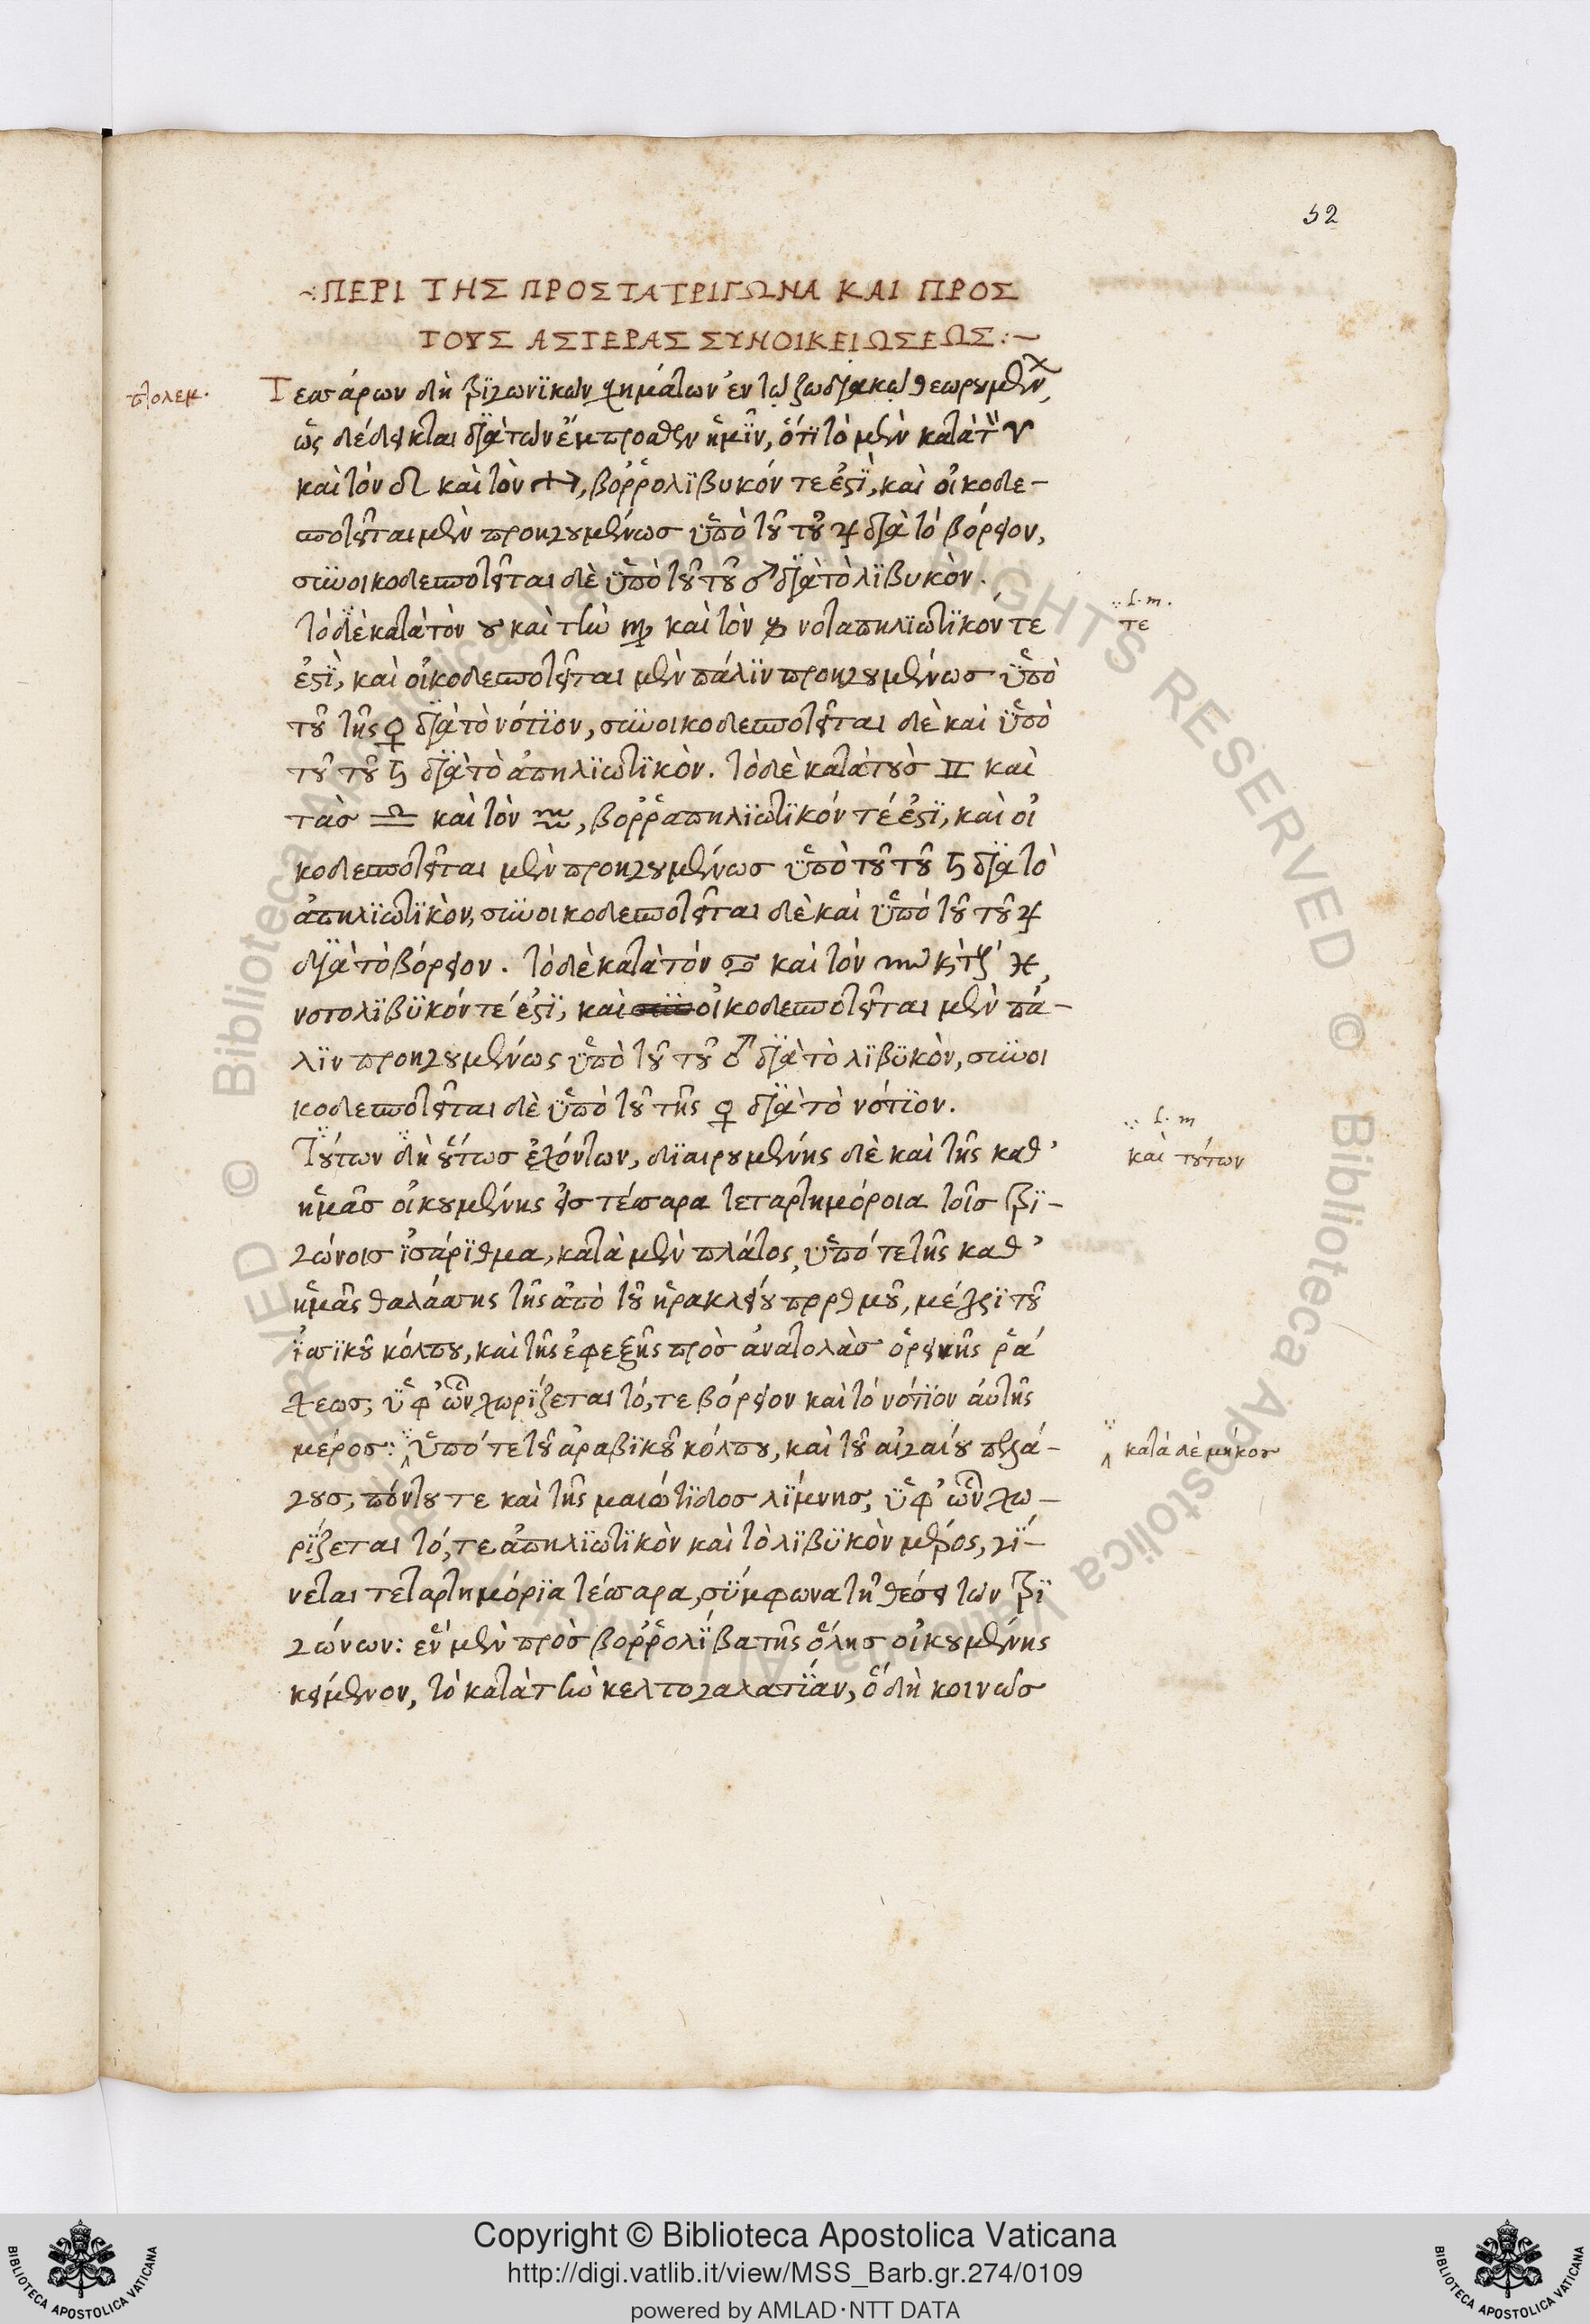 52
-:ΠΕΡΙ ΤΗΣ ΠΡΟΣ ΤΑ ΤΡΙΓΩΝΑ ΚΑΙ ΠΡΟΣ
ΤΟΥΣ ΑΣΤΕΡΑΣ ΣΥΝΟΙΚΕΙΩΣΕΩΣ:—
πτολεμ.
Τεσσάρων δὴ τριγωνϊκῶν σχημάτων ἐν τῷ ζωδιακῷ θεωρουμένων,
ὡς δέδεικται διὰ τῶν ἔμπροσθεν ἡμῖν, ὅτι τὸ μὲν κατὰ τὸν ♈
καὶ τὸν ♌ καὶ τὸν ♐, βορρολϊβυκόν τε ἐστὶ, καὶ οἰκοδε-
σποτεῖται μὲν προηγουμένως ὑπὸ τοῦ τοῦ ♃ διὰ τὸ βόρειον,
συνοικοδεσποτεῖται δὲ ὑπὸ τοῦ τοῦ ♂ διὰ τὸ λϊβυκὸν.
τὸ δὲ κατὰ τὸν ♉ καὶ τὴν ♍ καὶ τὸν ♑ νοταπηλϊωτϊκόν τε
ἐστὶ, καὶ οἰκοδεσποτεῖται μὲν πάλϊν προηγουμένως ὑπὸ
τοῦ τῆς ♀ διὰ τὸ νότϊον, συνοικοδεσποτεῖται δὲ καὶ ὑπὸ
τοῦ τοῦ ♄ διὰ τὸ ἀπηλϊωτϊκὸν. τὸ δὲ κατὰ τοὺς ♊ καὶ
τὰς ♎ καὶ τὸν ♒, βορραπηλϊωτϊκόν τέ ἐστϊ, καὶ οἰ
κοδεσποτεῖται μὲν προηγουμένως ὑπὸ τοῦ τοῦ ♄ διὰ τὸ
ἀπηλϊωτϊκὸν, συνοικοδεσποτεῖται δὲ καὶ ὑπὸ τοῦ τοῦ ♃
διὰ τὸ βόρειον. τὸ δὲ κατὰ τὸν ♋ καὶ τὸν ♏ καὶ τοὺς ♓,
νοτολϊβϋκόν τέ ἐστϊ, καὶ οἰκοδεσποτεῖται μὲν πά-
λϊν προηγουμένως ὑπὸ τοῦ τοῦ ♂ διὰ τὸ λϊβϋκὸν, συνοι
κοδεσποτεῖται δὲ ὑπὸ τοῦ τῆς ♀ διὰ τὸ νότϊον.
Τούτων δὴ οὕτως ἐχόντων, δϊαιρουμένης δὲ καὶ τῆς καθ'
ἡμᾶς οἰκουμένης εἰς τέσσαρα τεταρτημόροια τοῖς τρϊ-
γώνοις ἰσάρϊθμα, κατὰ μὲν πλάτος, ὑπό τε τῆς καθ'
ἡμᾶς θαλάσσης τῆς ἀπὸ τοῦ ἡρακλείου πορθμοῦ, μέχρϊ τοῦ
ἰσσϊκοῦ κόλπου, καὶ τῆς ἐφεξῆς πρὸς ἀνατολὰς ὀρεινῆς ῥά
χεως, ὑφ' ὧν χωρϊζεται τό, τε βόρειον καὶ τὸ νότϊον αὐτῆς
μέρος: ὑπό τε τοῦ ἀραβϊκοῦ κόλπου, καὶ τοῦ αἰγαίου πελά-
γους, πόντου τε καὶ τῆς μαιώτϊδος λϊμνης, ὑφ' ὧν χω-
ρϊζεται τό, τε ἀπηλϊωτϊκὸν καὶ τὸ λϊβϋκὸν μέρος, γϊ-
νεται τεταρτημόρϊα τέσσαρα, σύμφωνα τῇ θέσει τῶν τρϊ
γώνων: ἓν μὲν πρὸς βορρολϊβα τῆς ὅλης οἰκουμένης
κείμενον, τὸ κατὰ τὴν κελτογαλατϊαν, ὃ δὴ κοινῶς
τε
καὶ τούτων
κατὰ δὲ μῆκος
Copyright © Biblioteca Apostolica Vaticana
http://digi.vatlib.it/view/MSS_Barb.gr.274/0109
powered by AMLAD·NTT DATA
BIBLIOTECA APOSTOLICA VATICANA
BIBLIOTECA APOSTOLICA VATICANA